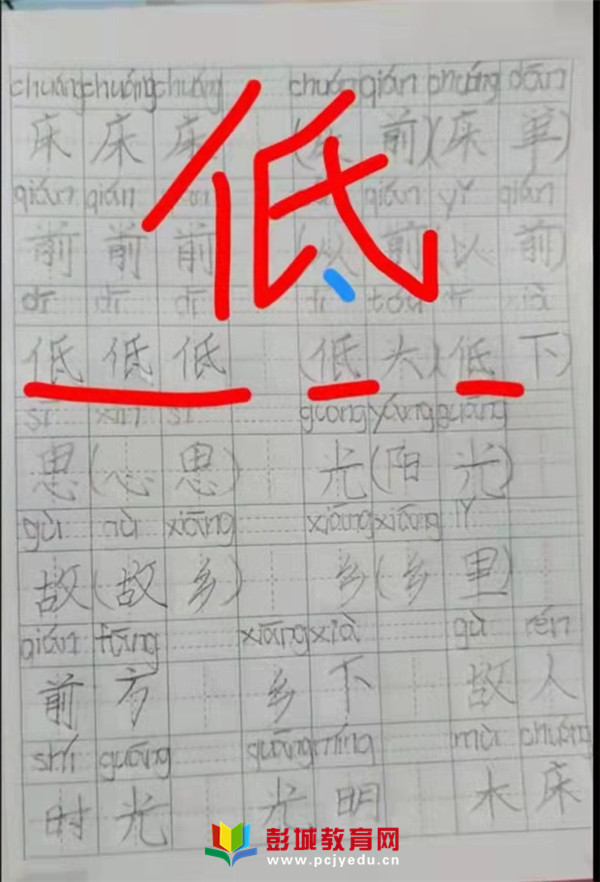 chuáng chuáng chuáng chuáng qián chuáng dān
低
床 床 床 ( 前)(床 单)
qián qián qián yǐ qián
前 前 前 (以 前)(以 前)
dī dī dī dī tóu dī xià
低 低 低 (低 头)(低 下)
sī xīn sī guāng yáng guāng
思(心思) 光(阳光)
gù gù xiāng xiāng xiāng lǐ
故(故乡) 乡(乡里)
qián fāng xiāng xià gù rén
前方 乡下 故人
shí guāng guāng míng mù chuáng
时光 光明 木床
彭城教育网
www.pcjyedu.cn